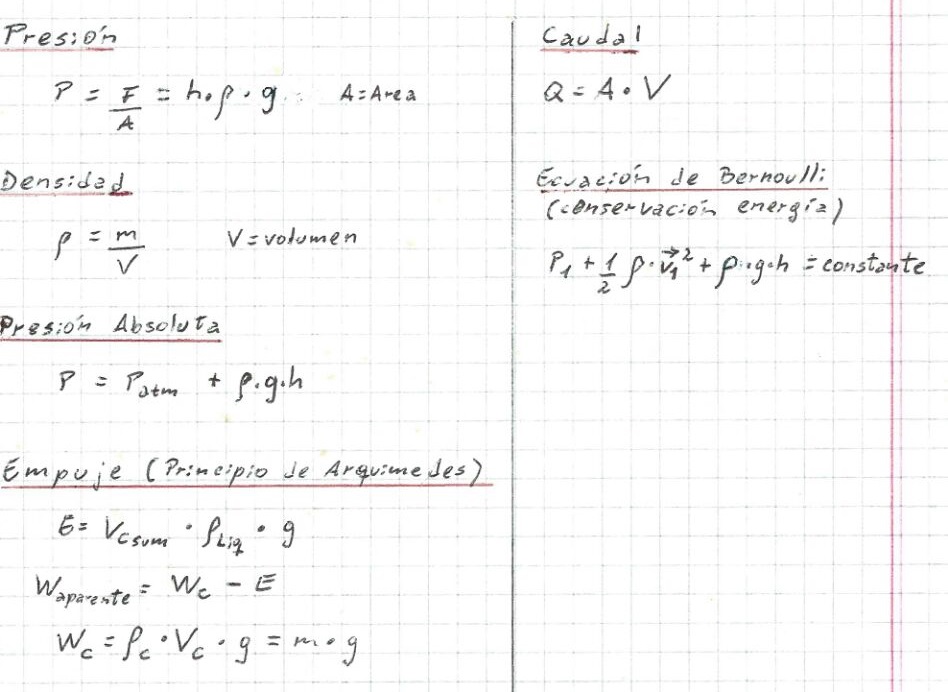 Presión
P = F/A = h·ρ·g    A=Area
Densidad
ρ = m/V    V=volumen
Presión Absoluta
P = Patm + ρ.g.h
Empuje (Principio de Arquimedes)
E= VCsum · ρLiq · g
Waparente = Wc - E
Wc = ρc·Vc·g = m·g
Caudal
Q = A·V
Ecuación de Bernoulli
(conservación energía)
P₁ + 1/2 ρ·v⃗₁² + ρ·g·h = constante